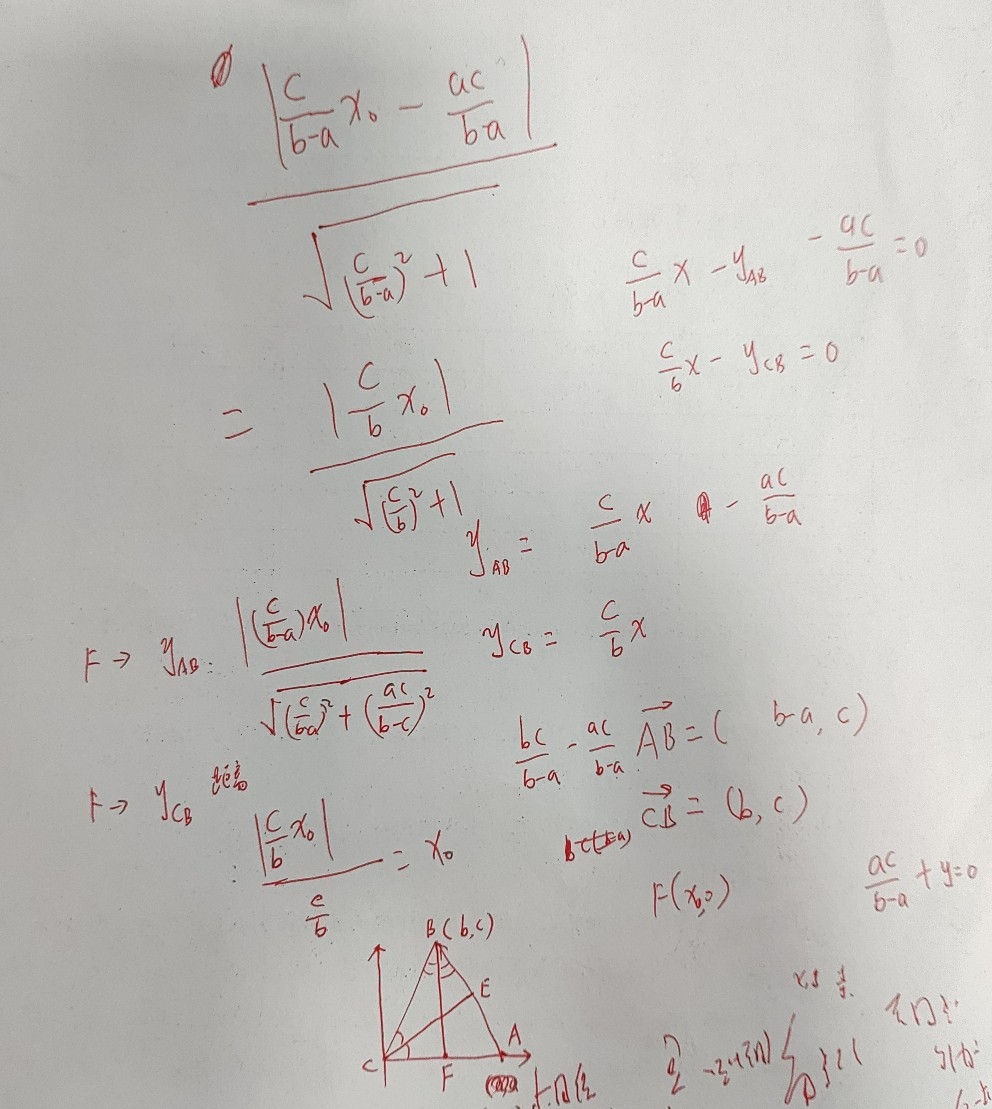 |c/(b-a) x₀ - ac/(b-a)|
/ √((c/(b-a))² + 1)
c/(b-a) x - y_AB - ac/(b-a) = 0
c/b x - y_CB = 0
= |c/b x₀| / √((c/b)² + 1)
y_AB = c/(b-a) x - ac/(b-a)
F → y_AB: |(c/(b-a))x₀| / √((c/(b-a))² + (ac/(b-c))²)
y_CB = c/b x
bc/(b-a) - ac/(b-a)
AB→ = (b-a, c)
F → y_CB
: |c/b x₀| / (c/b) = x₀
CB→ = (b, c)
F(x₀, 0)
ac/(b-a) + y = 0
B(b,c)
E
A
C
F